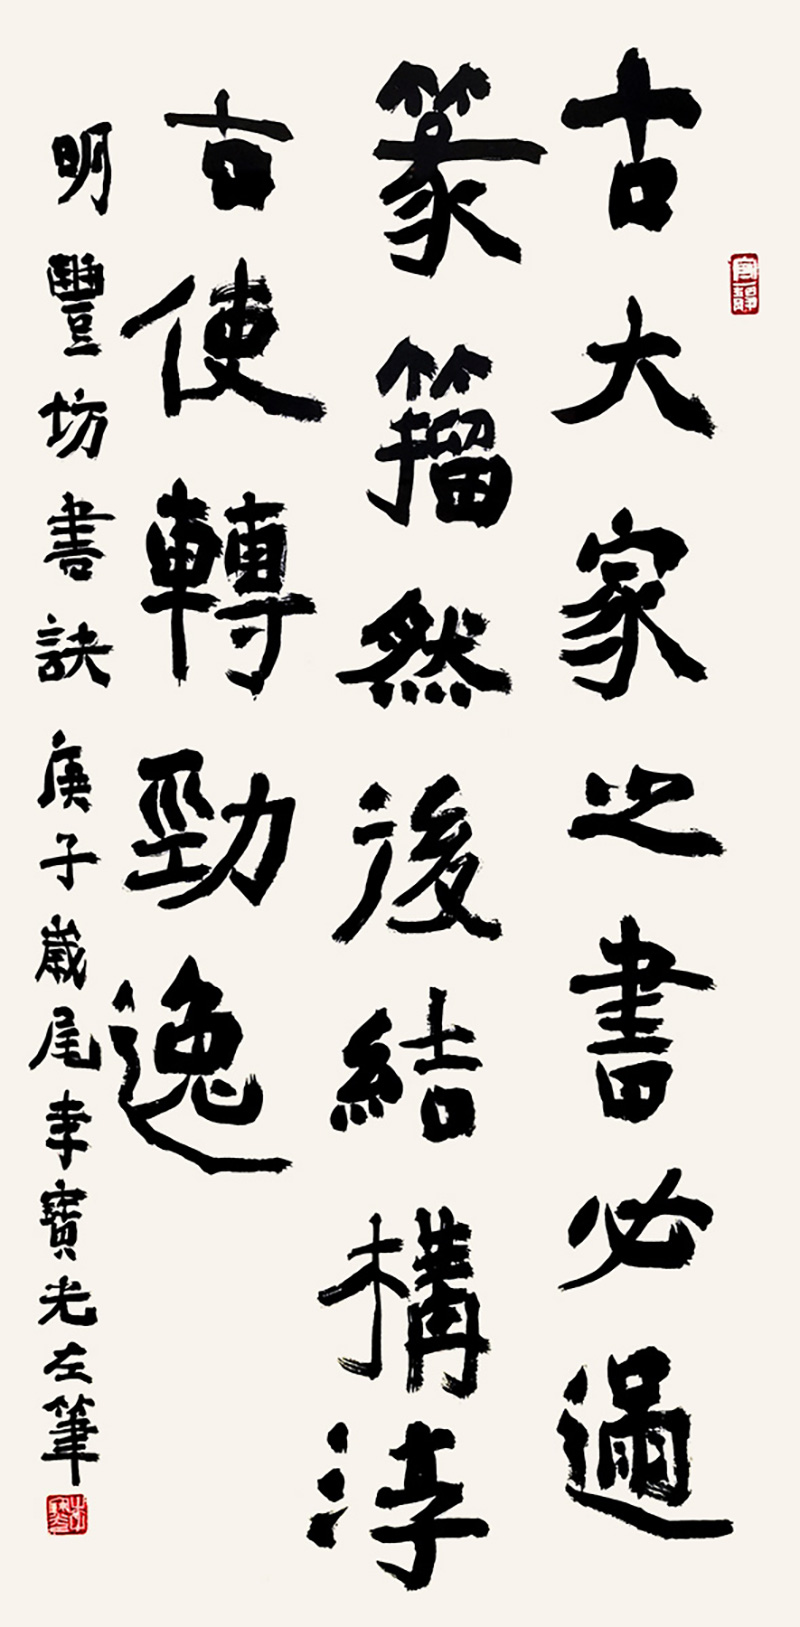 寧靜
古大家之書必通
篆籀然後結構淳
古使轉勁逸
明豐坊書訣庚子歲尾李寶光左筆